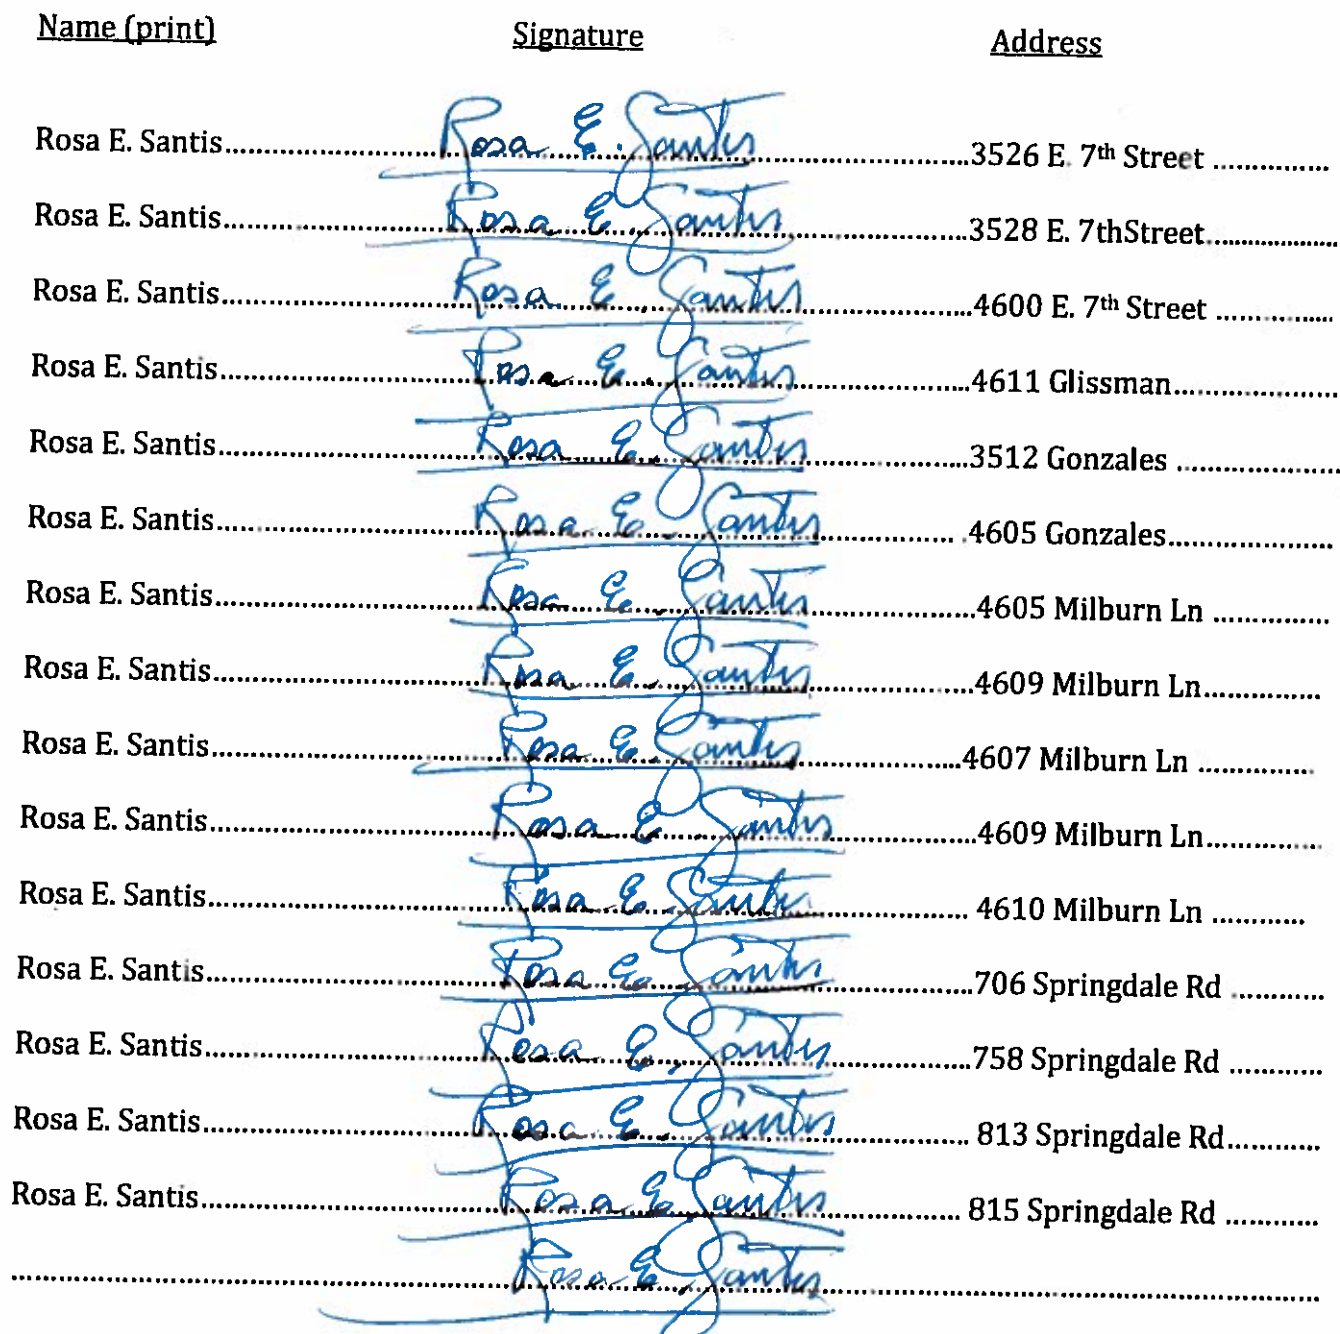 Name (print) Signature Address
Rosa E. Santis Rosa E. Santis 3526 E. 7th Street
Rosa E. Santis Rosa E. Santis 3528 E. 7thStreet
Rosa E. Santis Rosa E. Santis 4600 E. 7th Street
Rosa E. Santis Rosa E. Santis 4611 Glissman
Rosa E. Santis Rosa E. Santis 3512 Gonzales
Rosa E. Santis Rosa E. Santis 4605 Gonzales
Rosa E. Santis Rosa E. Santis 4605 Milburn Ln
Rosa E. Santis Rosa E. Santis 4609 Milburn Ln
Rosa E. Santis Rosa E. Santis 4607 Milburn Ln
Rosa E. Santis Rosa E. Santis 4609 Milburn Ln
Rosa E. Santis Rosa E. Santis 4610 Milburn Ln
Rosa E. Santis Rosa E. Santis 706 Springdale Rd
Rosa E. Santis Rosa E. Santis 758 Springdale Rd
Rosa E. Santis Rosa E. Santis 813 Springdale Rd
Rosa E. Santis Rosa E. Santis 815 Springdale Rd
Rosa E. Santis